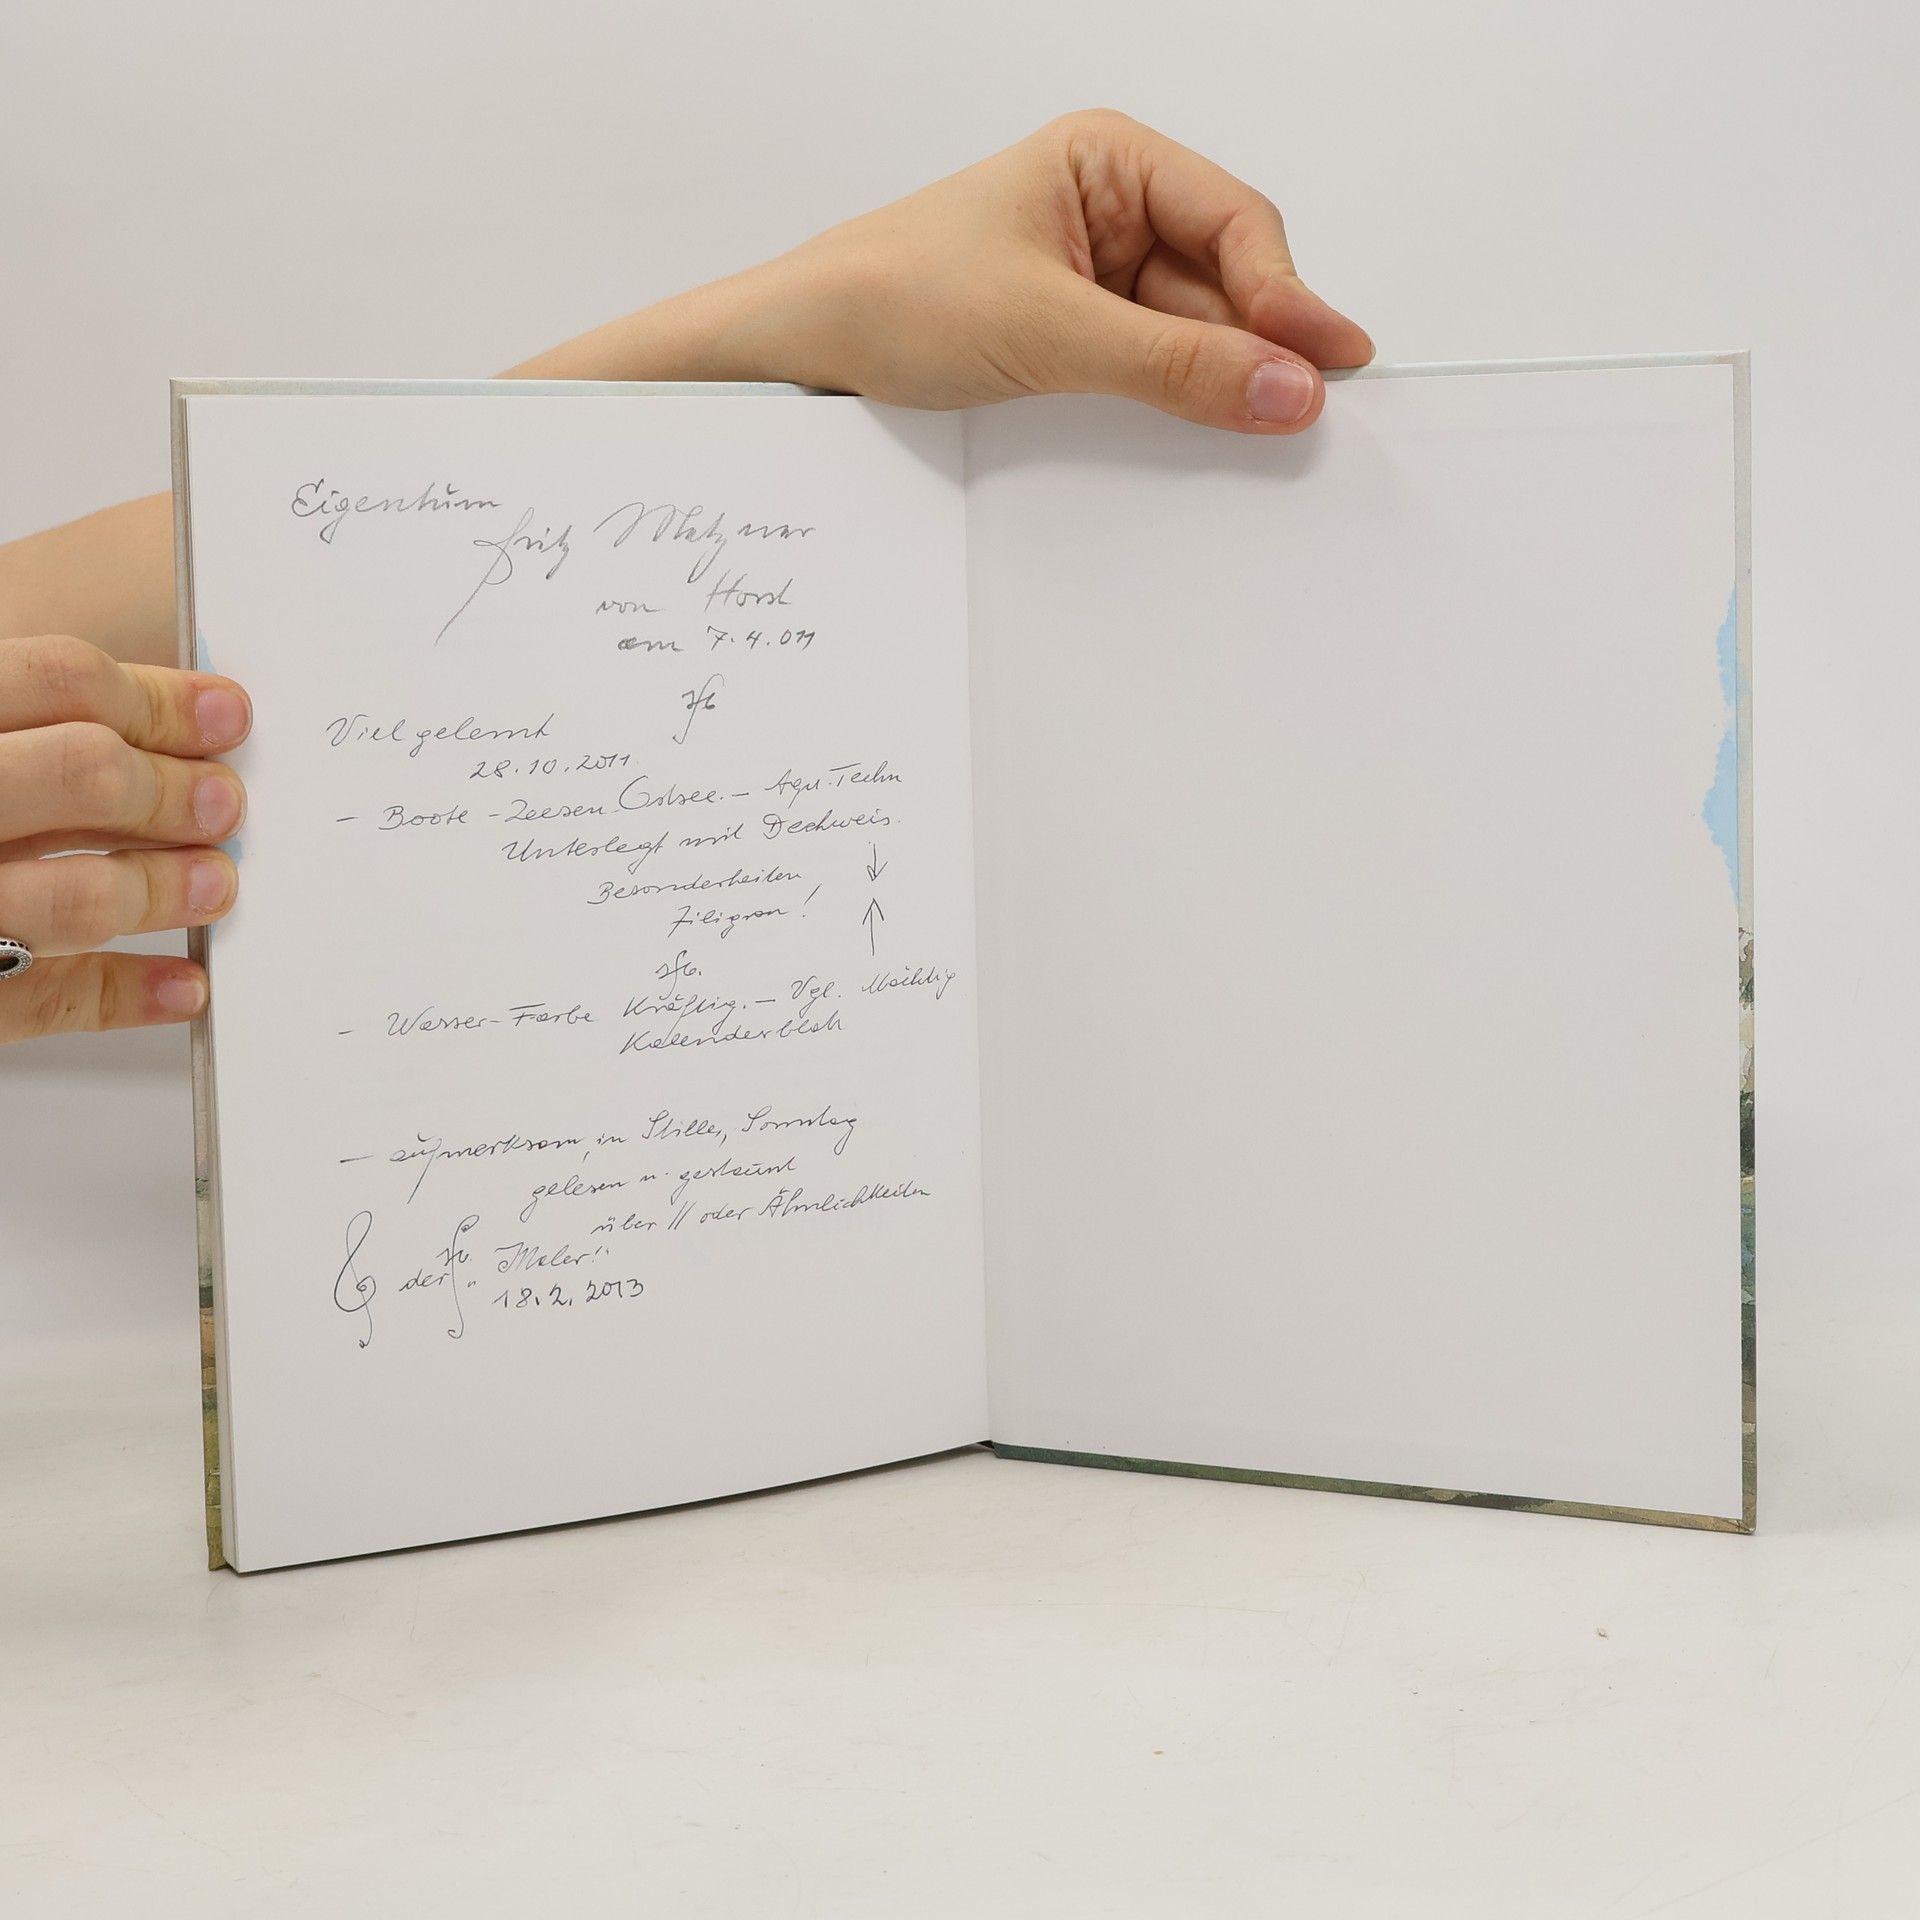 Eigentum
Fritz Metzner
von Horst
am 7.4.011
Viel gelernt
28.10.2011
- Boote - Zeesen Ostsee. - Aqu. Techn
Unterlegt mit Deckweis.
Besonderheiten
Filigran!
- Wasser-Farbe Kräftig. - Vgl. Mächtig
Kalenderblatt
- aufmerksam, in Stille, Sonntag
gelesen u. gestaunt
über // oder Ähnlichkeiten
der "Maler!"
18.2.2013